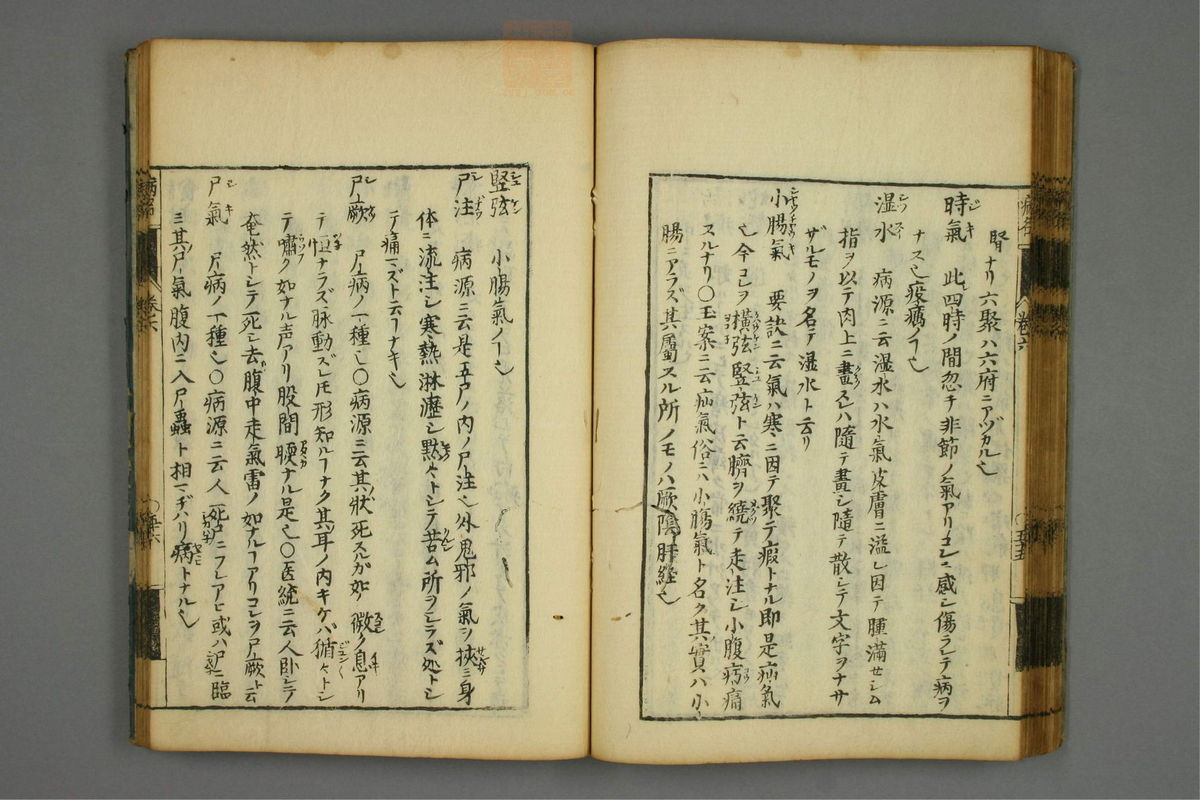 腎ナリ六聚ハ六府ニアヅカル也
時氣 此四時ノ間忽チ非節ノ氣アリコレニ感シ傷ラレテ病ヲ
ナス也疫癘ノヿ也
湿水 病源ニ云湿水ハ水氣皮膚ニ溢レ因テ腫滿セシム
指ヲ以テ肉上ニ畫スレハ隨テ畫シ隨テ散シテ文字ヲナサ
ザルモノヲ名テ湿水ト云リ
小腸氣 要訣ニ云氣ハ寒ニ因テ聚テ瘕トナル即是疝氣
也今コレヲ橫弦竪弦ト云臍ヲ繞テ走注シ小腹㽲痛
スルナリ〇玉案ニ云疝氣俗ニハ小腸氣ト名ク其實ハ小
腸ニアラズ其屬スル所ノモノハ厥陰肝経也
竪弦 小腸氣ノヿ也
尸注 病源ニ云是五尸ノ内ノ尸注也外鬼邪ノ氣ヲ挾ミ身
体ニ流注シ寒熱淋瀝シ黙々トシテ苦ム所ヲシラズ処トシ
テ痛マズト云フナキ也
尸厥 尸病ノ一種也〇病源ニ云其狀死スルガ如ノ微ク息アリ
テ恒ナラズ脉動ズレ𪜈形知ルヿナク其耳ノ内キケバ循々トシ
テ嘯ク如ナル声アリ股間煗ナル是也〇医統ニ云人卧シテ
奄然トシテ死シ去腹中走氣雷ノ如ナルヿアリコレヲ尸厥ト云
尸氣 尸病ノ一種也〇病源ニ云人死尸ニフレアヒ或ハ尸ニ臨
ミ其尸ノ氣腹内ニ入尸蟲ト相マヂハリ病トナル也